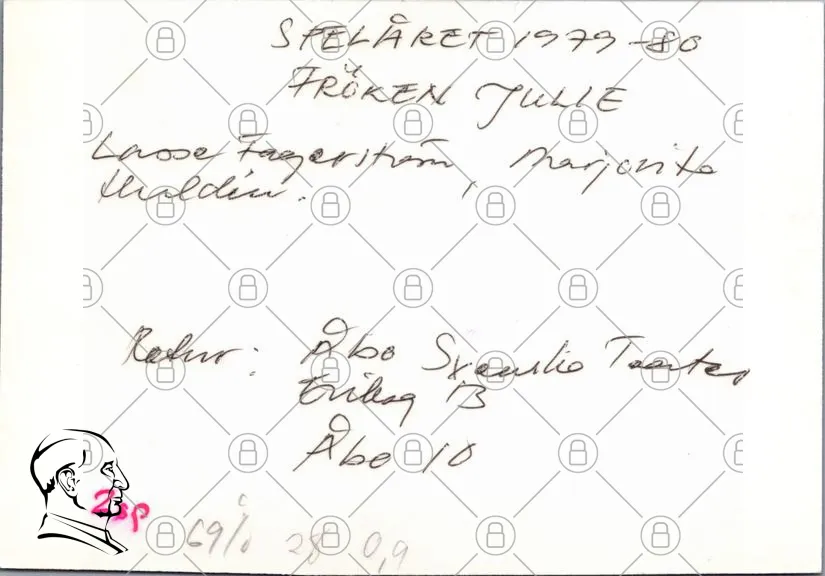 SPELÅRET 1979-80
FRÖKEN JULIE
Lasse Fagerström, Marjorita
Huldén.
Retur: Åbo Svenska Teater
Eriksg 13
Åbo 10
2sp
69% 28 0,9